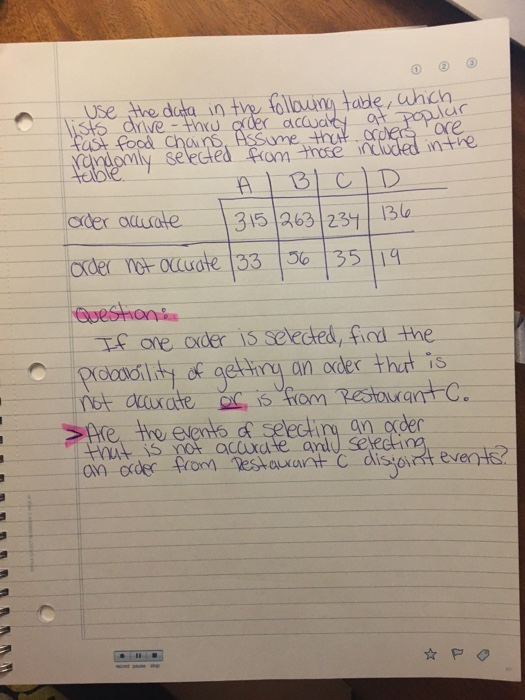 1 2 3
Use the data in the following table, which
lists drive-thru order accuracy at popular
fast food chains. Assume that orders are
randomly selected from those included in the
table.
A B C D
order accurate 315 263 234 136
order not accurate 33 56 35 19
Question:
If one order is selected, find the
probability of getting an order that is
not accurate or is from Restaurant C.
> Are the events of selecting an order
that is not accurate and selecting
an order from Restaurant C disjoint events?
record pause stop